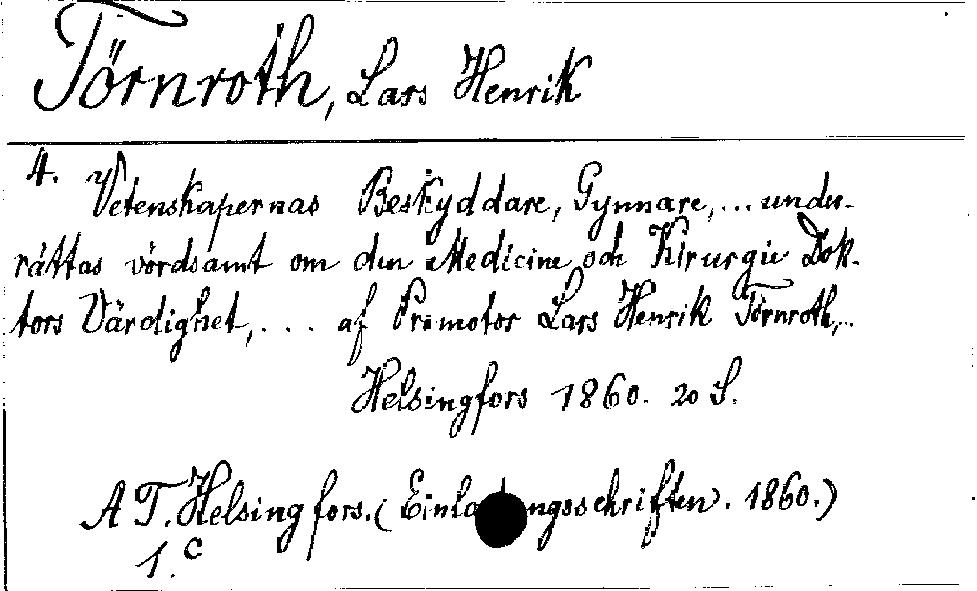 Törnroth, Lars Henrik
4. Vetenskapernas Beskyddare, Gynnare,... under-
rättas vördsamt om den Medicine och Kirurgie Dok-
tors Värdighet,.... af Promotor Lars Henrik Törnroth,..
Helsingfors 1860. 20 S.
A T. Helsingfors. (Einladungsschriften. 1860.)
1.c